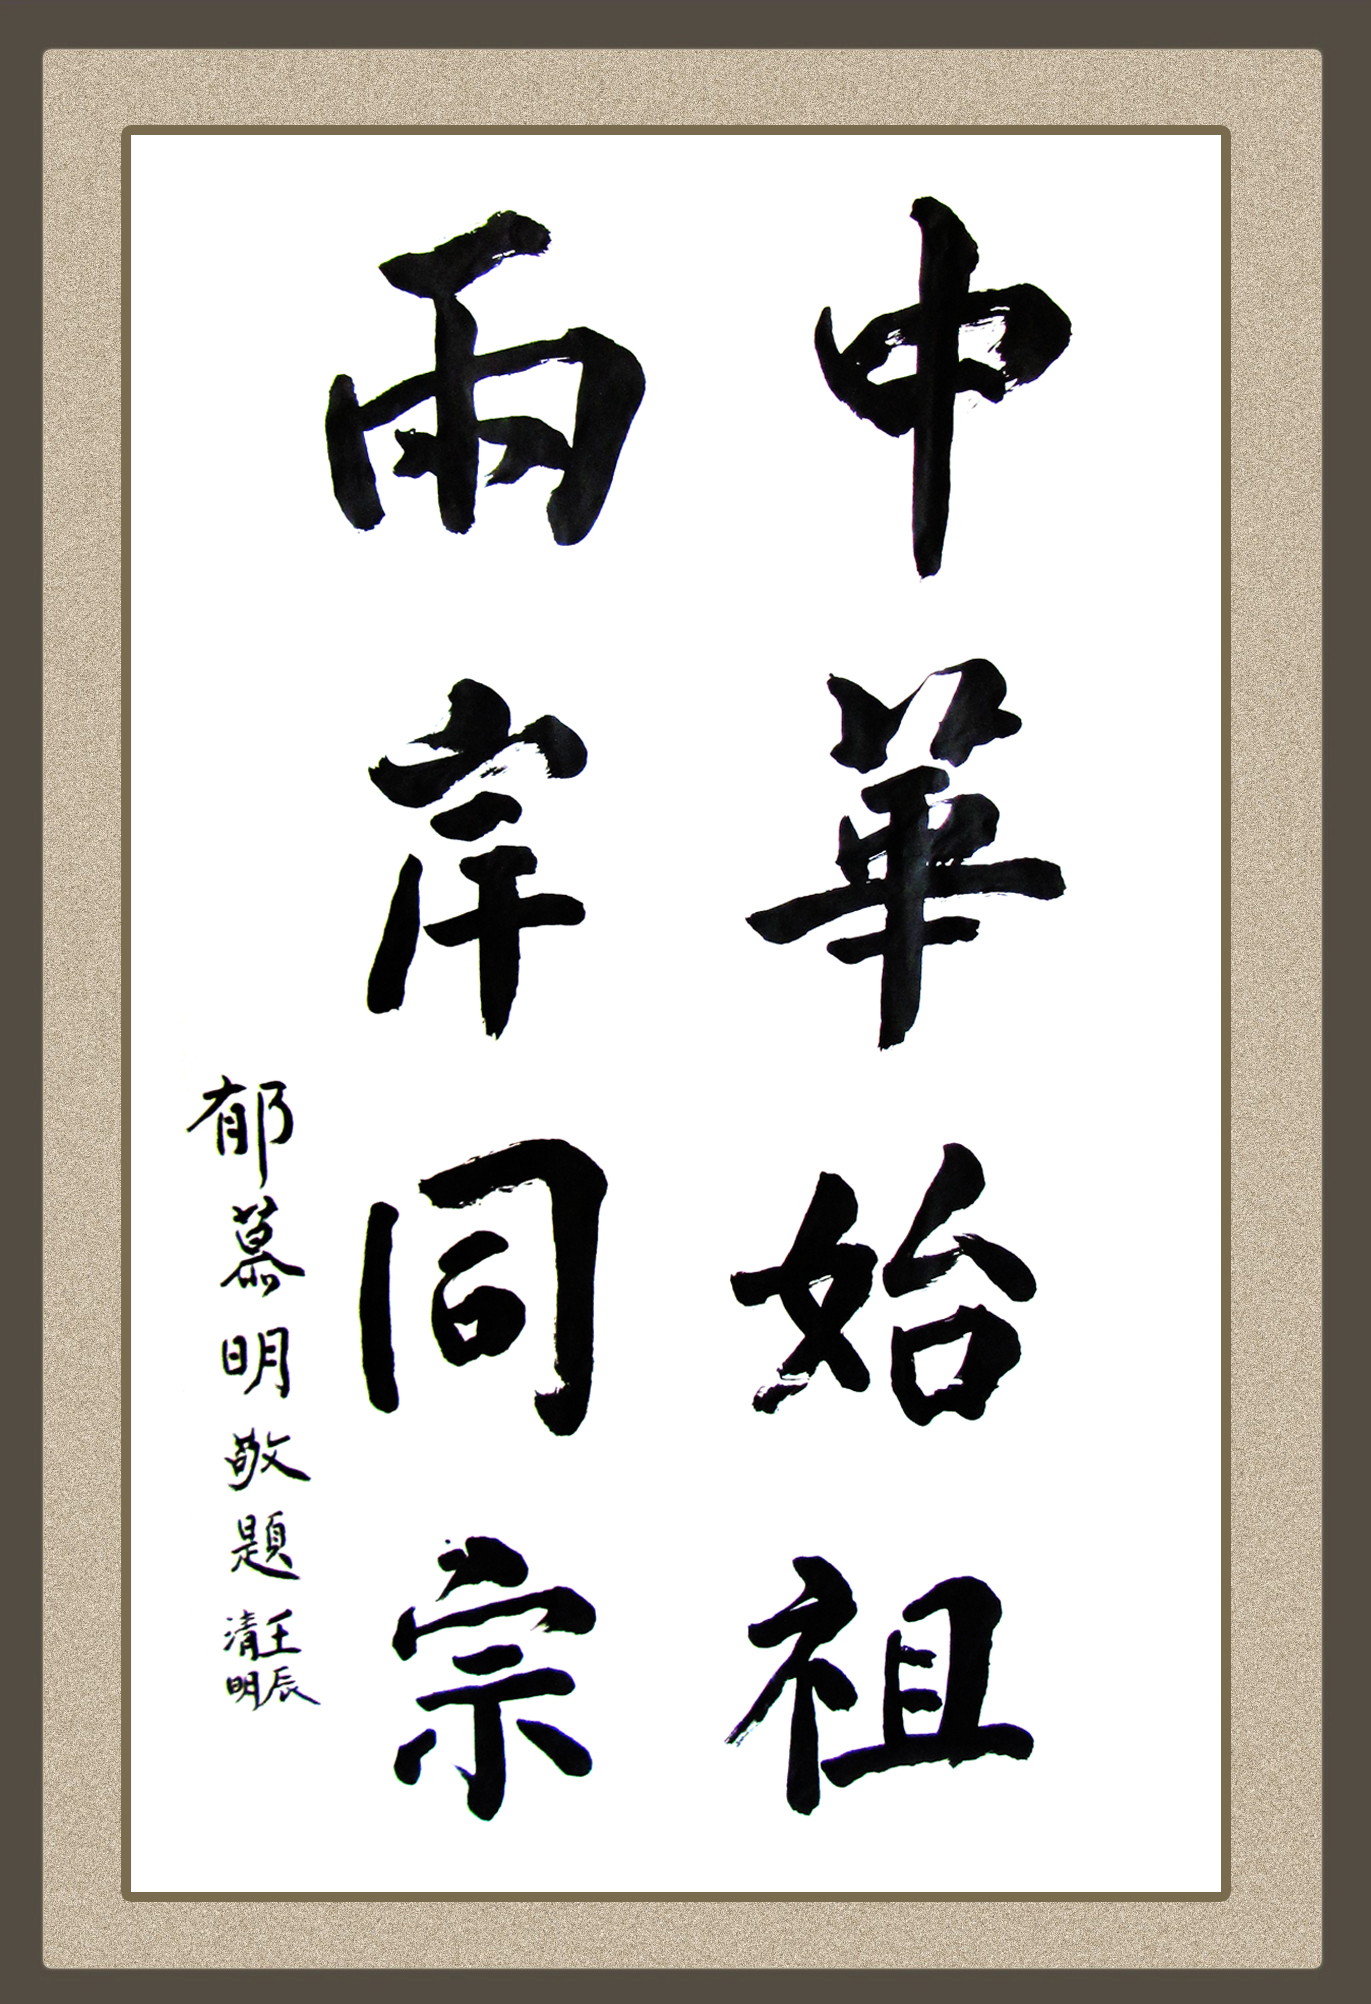 中華始祖
兩岸同宗
郁慕明敬題
壬辰
清明